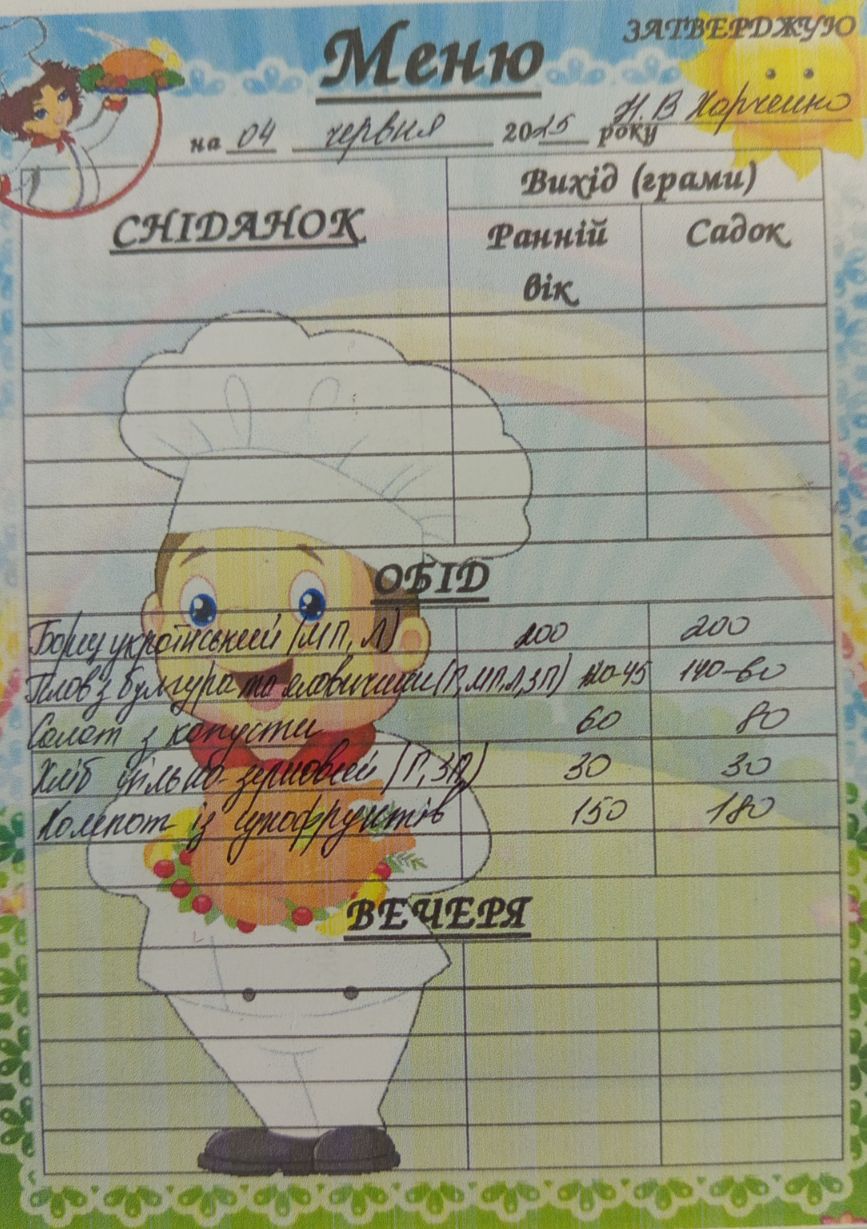 ЗАТВЕРДЖУЮ
Меню
Н.В Харченко
на 04 червня 2025 року
СНІДАНОК
Вихід (грами)
Ранній вік
Садок
ОБІД
Борщ український (МП, Л) 200 200
Плов з булгура та яловичини (Г, МП, Л, ЗП) 110-45 140-60
Салат з капусти 60 80
Хліб цільно-зерновий (Г, ЗП) 30 30
Компот із сухофруктів 150 180
ВЕЧЕРЯ